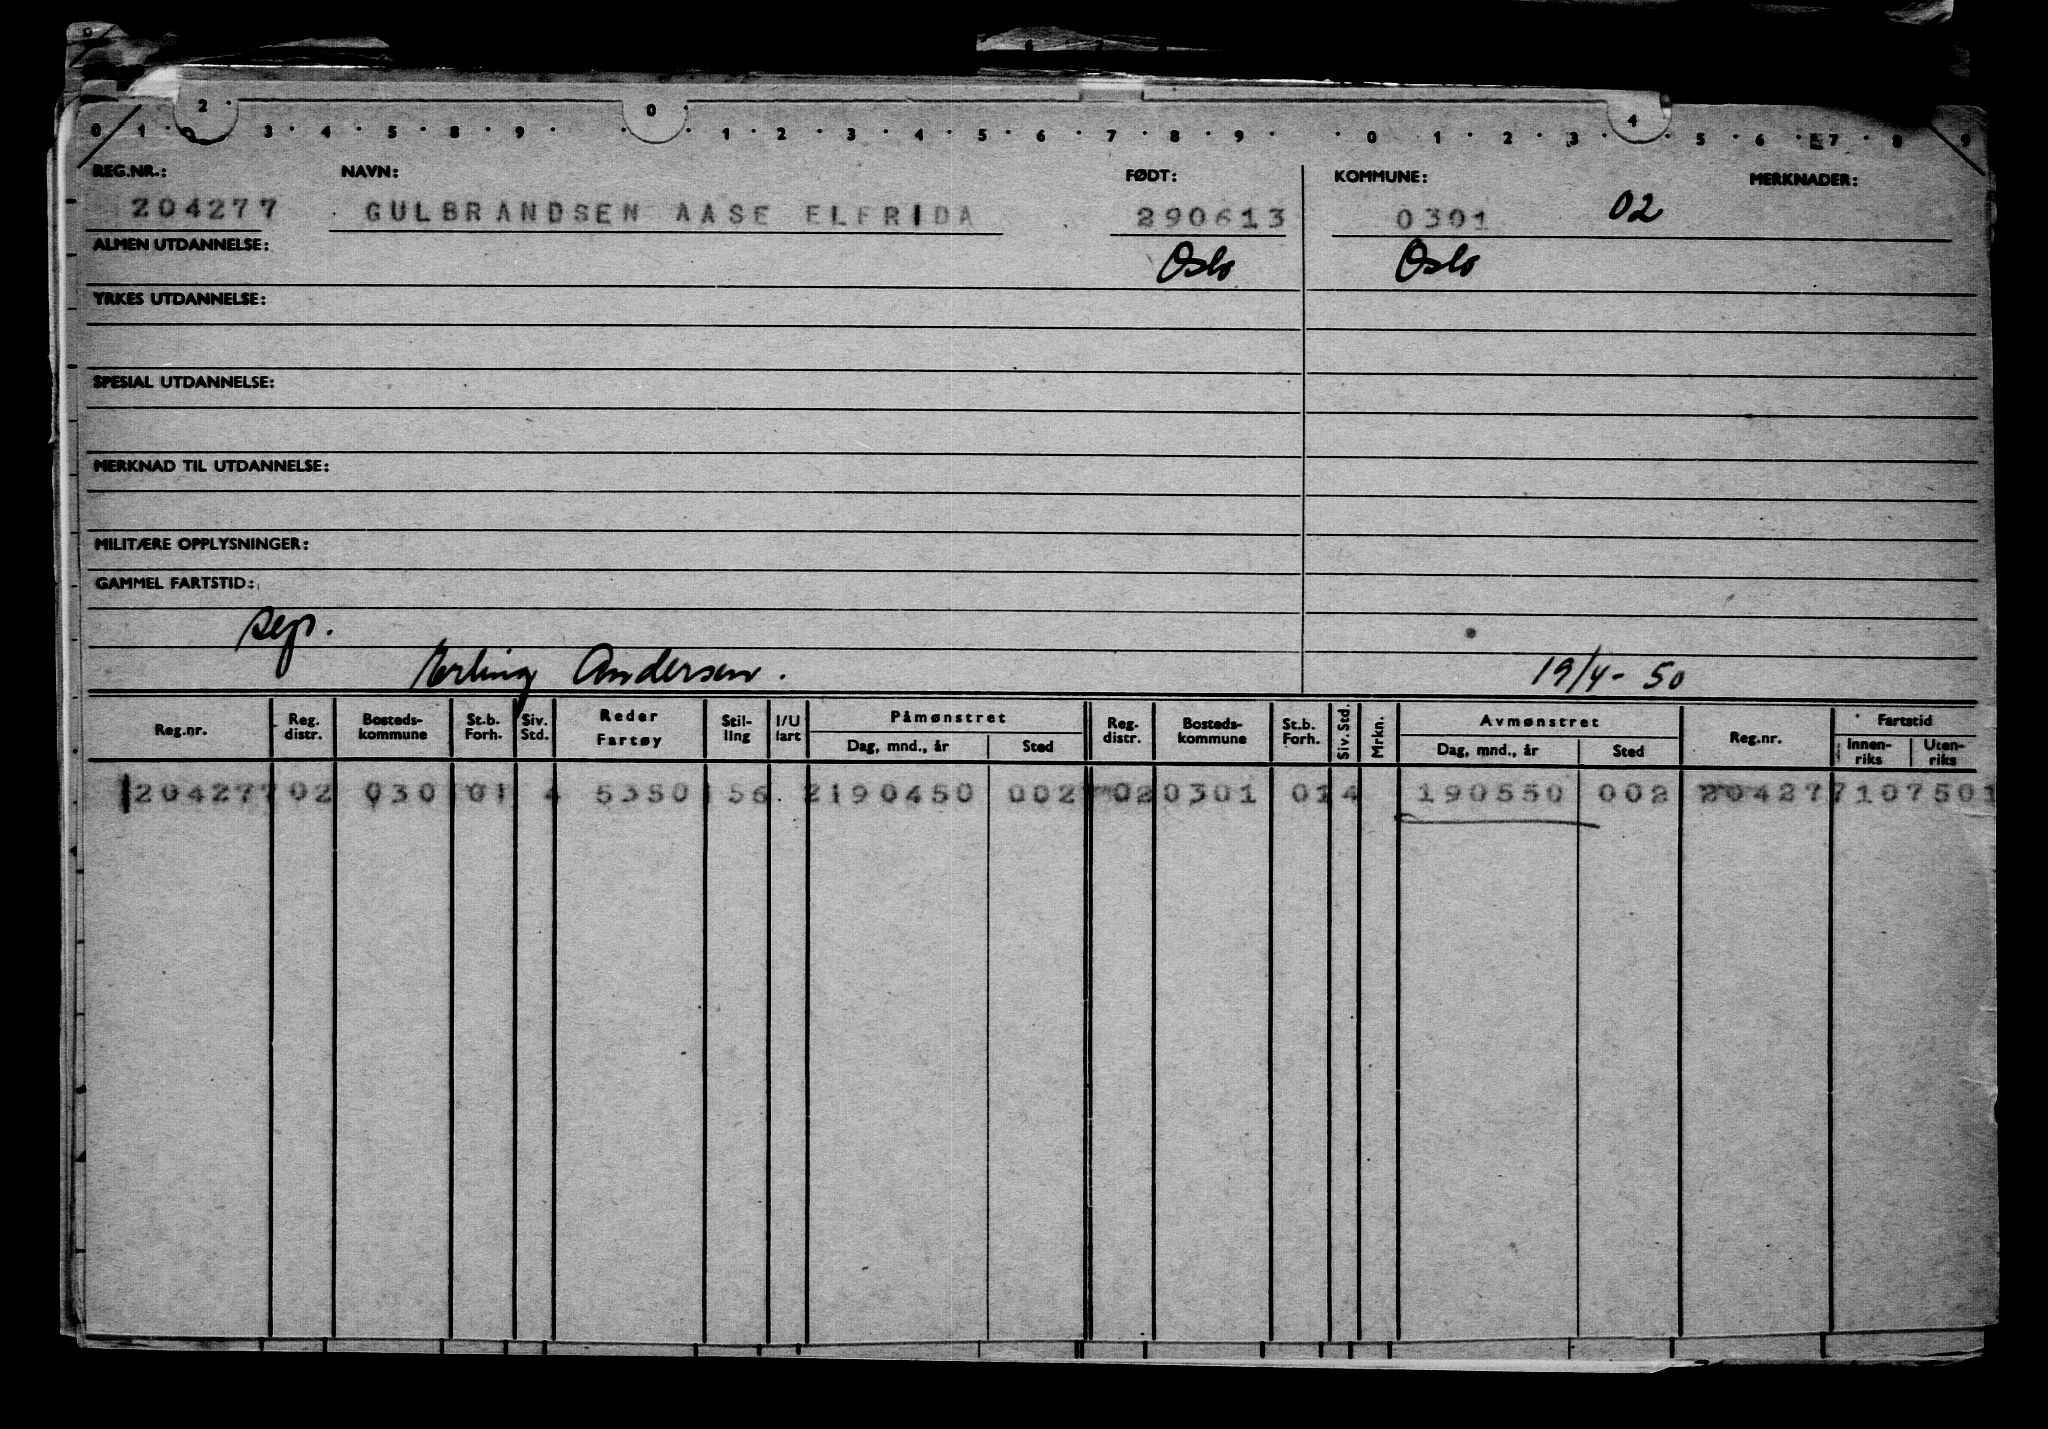 0 1 2 3 4 5 8 9 0 1 2 3 4 5 6 7 8 9 0 1 2 3 4 5 6 7 8 9
REG.NR.: NAVN: FØDT: KOMMUNE: MERKNADER:
204277 GULBRANDSEN AASE ELFRIDA 290613 0301 02
ALMEN UTDANNELSE: Oslo Oslo
YRKES UTDANNELSE:
SPESIAL UTDANNELSE:
MERKNAD TIL UTDANNELSE:
MILITÆRE OPPLYSNINGER:
GAMMEL FARTSTID:
sep.
Erling Andersen. 19/4-50
Reg.nr. Reg. distr. Bosteds-kommune St.b. Forh. Siv. Std. Reder Fartøy Stil-ling I/U fart Påmønstret Dag, mnd., år Sted Reg. distr. Bosteds-kommune St.b. Forh. Siv. Std. Mrkn. Avmønstret Dag, mnd., år Sted Reg.nr. Fartstid Innen-riks Uten-riks
204277 02 030 01 4 5350 156 2 190450 002 02 0301 01 4 190550 002 204277 107501